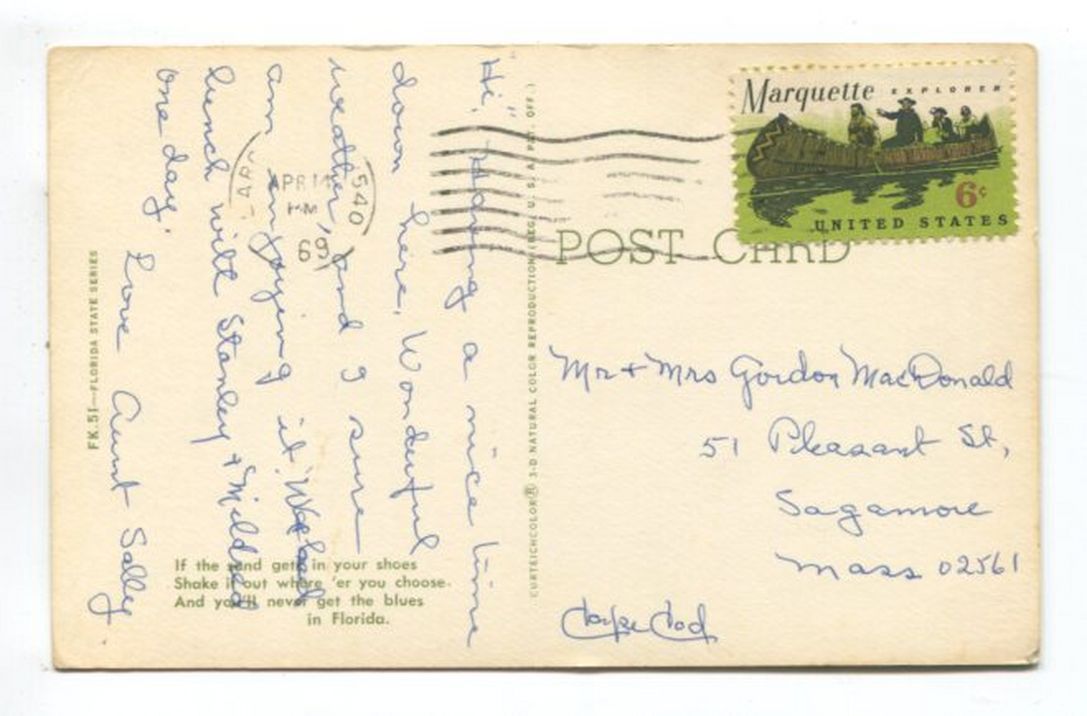 Hi, Having a nice time
down here, Wonderful
weather, and I sure
am enjoying it, We had
lunch with Stanley + Mildred
one day. Love Aunt Sally.
FK.51—FLORIDA STATE SERIES
If the sand gets in your shoes
Shake it out where 'er you choose.
And you'll never get the blues
in Florida.
APR 14
PM
69
540
CURTEICHCOLOR® 3-D NATURAL COLOR REPRODUCTION (REG. U. S. A. PAT. OFF.)
Marquette EXPLORER
6c
UNITED STATES
POST CARD
Mr + Mrs Gordon MacDonald
51 Pleasant St,
Sagamore
Mass 02561
Cape Cod